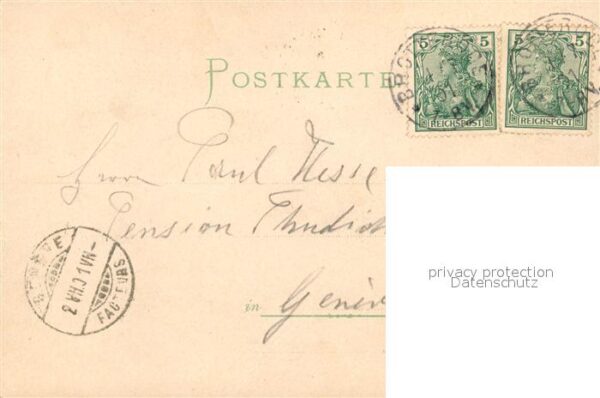 POSTKARTE
5 5
REICHSPOST
5 5
REICHSPOST
Herrn Paul Hesse
Pension
in Genève
FACTEURS
privacy protection
Datenschutz